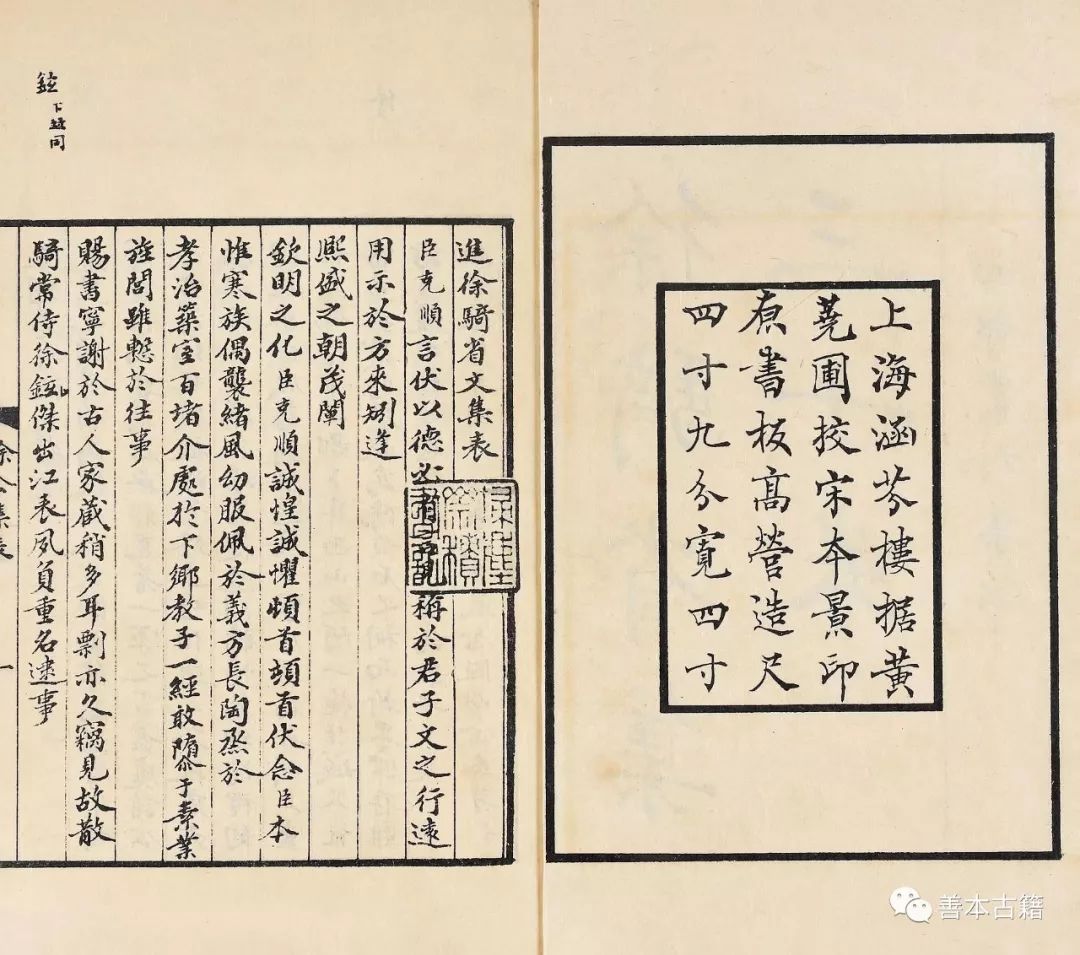 上海涵芬樓据黃
蕘圃挍宋本景印
原書板高營造尺
四寸九分寬四寸
進徐騎省文集表
臣克順言伏以德必有 稱於君子文之行遠
用示於方來矧逢
熙盛之朝茂闡
欽明之化臣克順誠惶誠懼頓首頓首伏念臣本
惟寒族偶襲緒風幼服佩於義方長陶烝於
孝治築室百堵介處於下鄉教子一經敢隳于素業
旌閭雖慙於往事
賜書寧謝於古人家藏稍多耳剽亦久竊見故散
騎常侍徐鉉傑出江表夙負重名逮事
鉉
下竝同
一
善本古籍